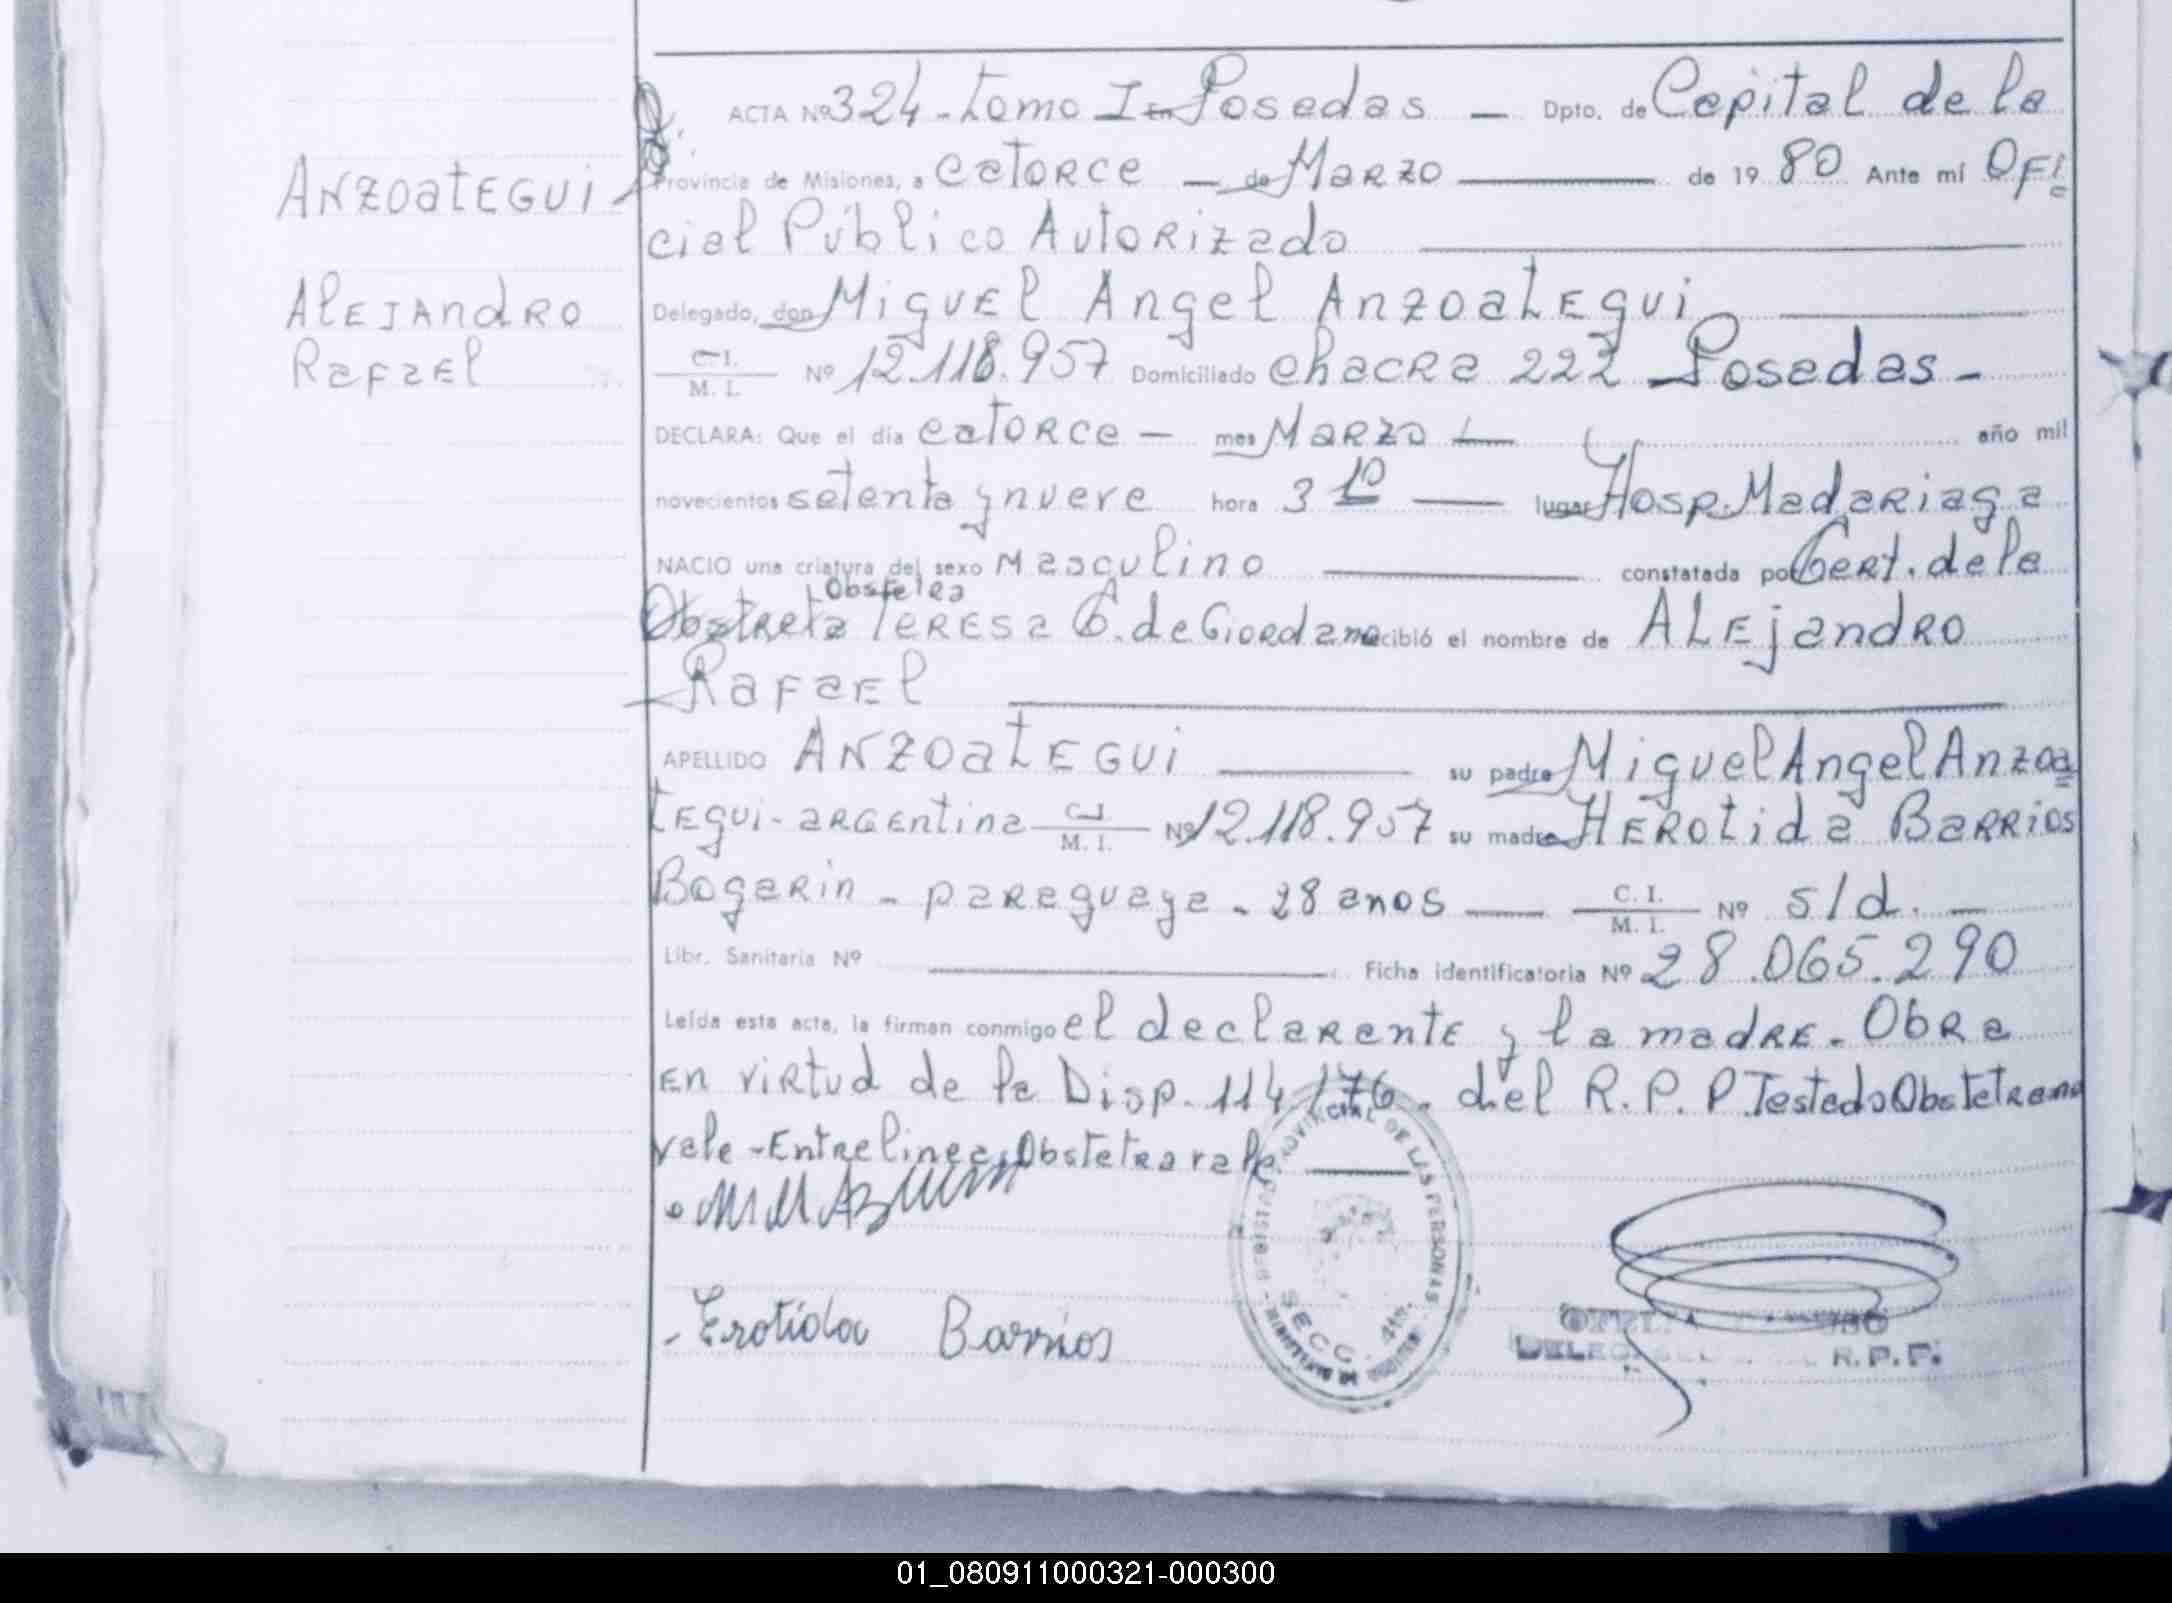 ANZOATEGUI
ALEJANDRO
RAFAEL
ACTA Nº 324 - Tomo I En Posadas — Dpto. de Capital de la
Provincia de Misiones, a CATORCE — de MARZO — de 19 80 Ante mí OFI
cial Público AUTORIZADO
Delegado, don MIGUEL Angel Anzoategui
C.I. / M. I. Nº 12.118.957 Domiciliado Chacra 222 Posadas -
DECLARA: Que el día CATORCE — mes MARZO — año mil
novecientos setenta y nueve hora 3 10 — lugar Hosp. Madariaga
NACIO una criatura del sexo Masculino — constatada por Cert. de la
Obstetra
Obstreta TERESA C. de Giordano recibió el nombre de ALEjandRO
RAFAEL
APELLIDO ANZOATEGUI — su padre Miguel Angel Anzoa
tegui - argentina C.I. / M. I. Nº 12.118.957 su madre HEROTIDA BARRIOS
Bogarin - paraguaya - 28 anos — C. I. / M. I. Nº s/d. —
Libr. Sanitaria Nº — Ficha identificatoria Nº 28.065.290
Leída esta acta, la firman conmigo el declarante y la madre - Obra
en virtud de la Disp. 114/76 - del R. P. P. Testado Obstetra no
vale - Entrelinea, Obstetra vale —
Erotida Barrios
PROVINCIAL DE LAS PERSONAS
SECC. 4ta.
DELEG R.P.P.
01_080911000321-000300